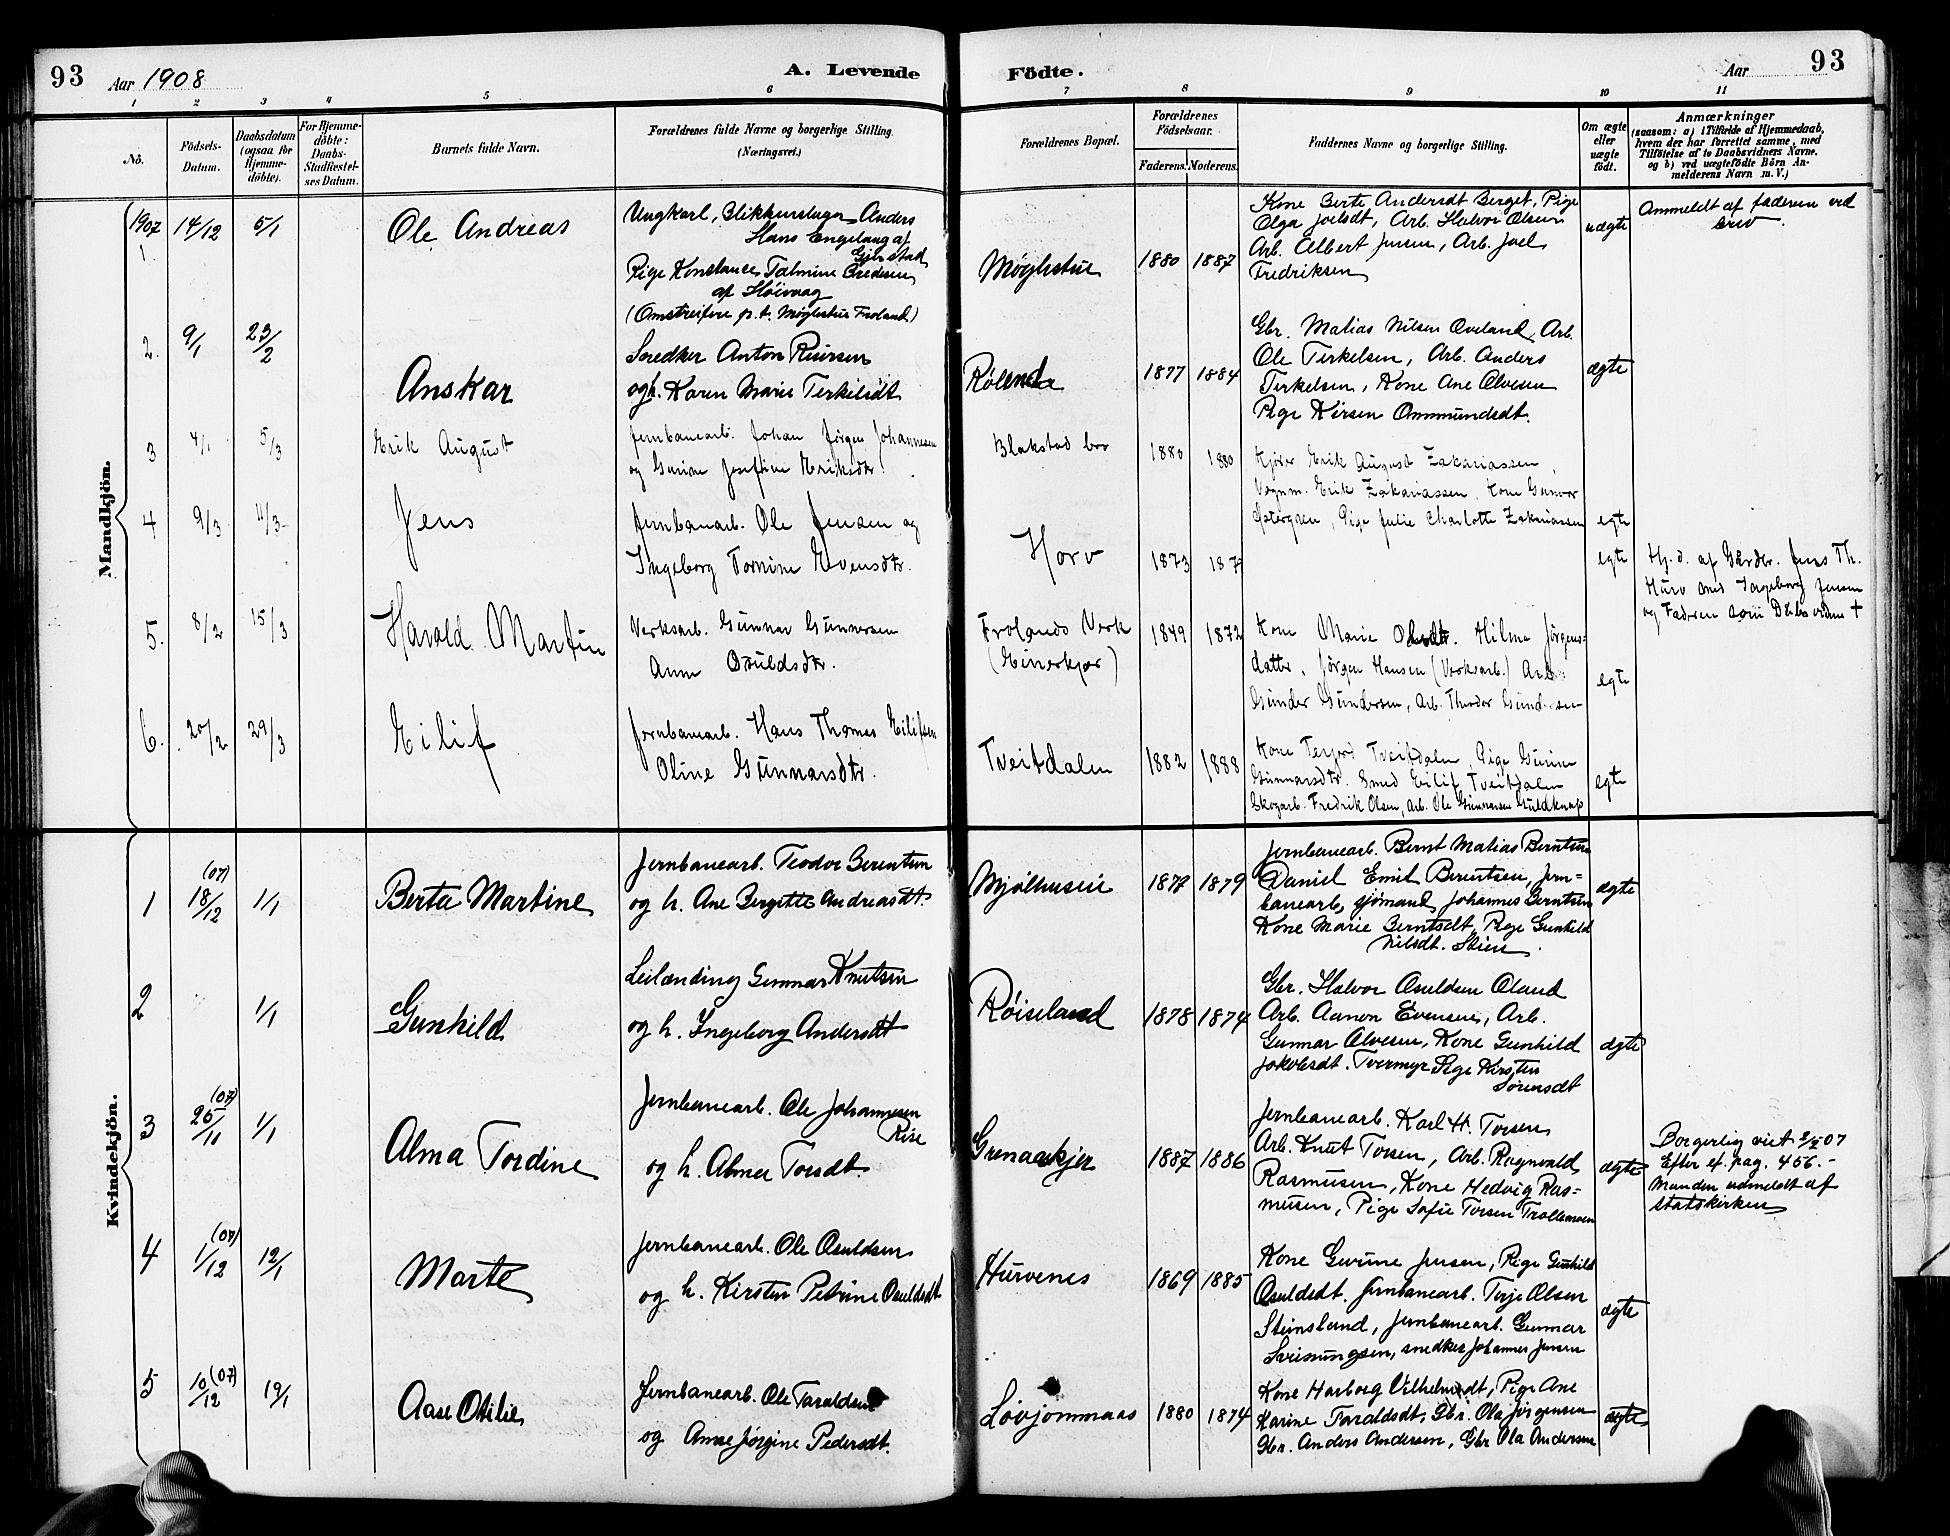 93
Aar 1908
A. Levende
Födte.
Aar
93
1 2 3 4 5 6 7 8 9 10 11
No.
Födsels-Datum.
Daabsdatum (ogsaa for Hjemme-döbte).
For Hjemme-döbte: Daabs-Stadfæstelses Datum.
Barnets fulde Navn.
Forældrenes fulde Navne og borgerlige Stilling. (Næringsvei.)
Forældrenes Bopæl.
Forældrenes Födselsaar.
Faderens. Moderens.
Faddernes Navne og borgerlige Stilling.
Om ægte eller uægte födt.
Anmærkninger
(saasom: a) i Tilfælde af Hjemmedaab, hvem der har forrettet samme, med Tilföielse af to Daabsvidners Navne. og b) ved uægtefödte Börn Anmelderens Navn m. V.)
Mandkjön.
1907
1 14/12 5/1 Ole Andreas
Ungkarl, Blikkenslager Anders
Hans Engelaug af
Gjerstad
Pige Konstance Talmine Bredsen
af Höivaag
(Omstreifere p.t. Møglestue Froland)
Møglestue 1880 1887
Kone Berte Andersdt Berget, Pige
Olga Joelsdt, Arb. Halvor Olsen
Arb. Albert Jensen, Arb. Joel
Fredriksen
uægte
Anmeldt af faderen ved
brev.
2. 9/1 23/2 Anskar
Snedker Anton Reiersen
og h. Karen Marie Terkilsdt
1877 1884
Gbr. Matias Nilsen Oveland, Arb.
Ole Terkelsen, Arb. Anders
Terkelsen, Kone Ane Olvesen
Pige Kirsen Ommundsdt.
ægte
3 4/1 5/3 Erik August
Jernbanearb. Johan Jørgen Johannesen
og Gurine Josefine Eriksdtr.
Blakstad bro 1880 1880
Erik August Zakariassen,
Vognm. Erik Zakariassen, Kone Gunvor
Østergren, Pige Julie Charlotte Zakariassen
egte
4 9/3 11/3 Jens
Jernbanearb. Ole Jensen og
Ingeborg Tornine Evensdtr.
Horv 1873 187
egte
Hj. d. af Gårdbr. Jens Th.
Hurv med Ingeborg Jensen
og Faderen som Dåbsvidner +
5. 8/2 15/3 Harald Martin
Verksarb. Gunnar Gunnersen
Anne Osuldsdtr.
Frolands Verk
(Einerkjær)
1849 1872
Kone Marie Olsdtr. Hilma Jörgens-
datter, Jörgen Hansen (Verksarb.) Arb.
Gunder Gundersen, Arb. Theodor Gundersen
egte
6. 20/2 29/3 Eilif
Jernbanearb. Hans Thomas Eilifsen
Oline Gunnarsdtr.
Tveitdalen 1882 1888
Kone Terjerd Tveitdalen, Pige Gurine
Gunnarsdtr. Smed Eilif Tveitdalen
Skogarb. Fredrik Olsen, Arb. Ole Gunnersen Guldknap
egte
Kvindekjön.
1 (07) 18/12 1/1 Berta Martine
Jernbanearb. Teodor Berentsen
og h. Ane Bergitte Andreasdt.
Mjølhusene 1877 1879
Jernbanearb. Bernt Matias Berntsen
Daniel Emil Berentsen, Jern=
banearb, sjømand, Johannes Berntsen
Kone Marie Berntsdt, Pige Gunhild
Nilsdt. Skien.
ægte
2 1/1 Gunhild
Leilænding Gunnar Knutsen
og h. Ingeborg Andersdt
Röiseland 1878 1874
Gbr. Halvor Osuldsen Öland
Arb. Aanon Evensen, Arb.
Gunnar Olvesen, Kone Gunhild
Jakobsdt. Tvermyr Pige Kirsten
Sörensdt
ægte
3 (07) 25/11 1/1 Alma Tordine
Jernbanearb. Ole Johannesen
Rise
og h. Alma Torsdt.
Grenaaskjer 1887 1886
Jernbanearb. Karl H. Torsen
Arb. Knut Torsen, Arb. Ragnvald
Rasmusen, Kone Hedvig Ras=
musen, Pige Sofie Torsen Trollemoen
ægte
Borgerlig viet 2/2 07
Efter ef. pag. 456.-
Manden udmeldt af
statskirken
4 (07) 1/12 12/1 Marte
Jernbanearb. Ole Osuldsen
og h. Kirsten Petrine Osuldsdt
Hurvenes 1869 1885
Kone Gurine Jensen, Pige Gunhild
Osuldsdt. Jernbanearb. Terje Olsen
Stensland, Jernbanearb. Gunnar
Sveinungsen, snedker Johannes Jensen
ægte
5 10/12 (07) 19/1 Aase Otilie
Jernbanearb. Ole Taraldsen
og Anne Jørgine Pedersdt.
Løvjommaas 1880 1874
Kone Harborg Vilhelmsdt, Pige Ane
Karine Taraldsdt, Gbr. Ola Jørgensen
Gbr. Anders Andersen, Gbr Ola Andersen
ægte